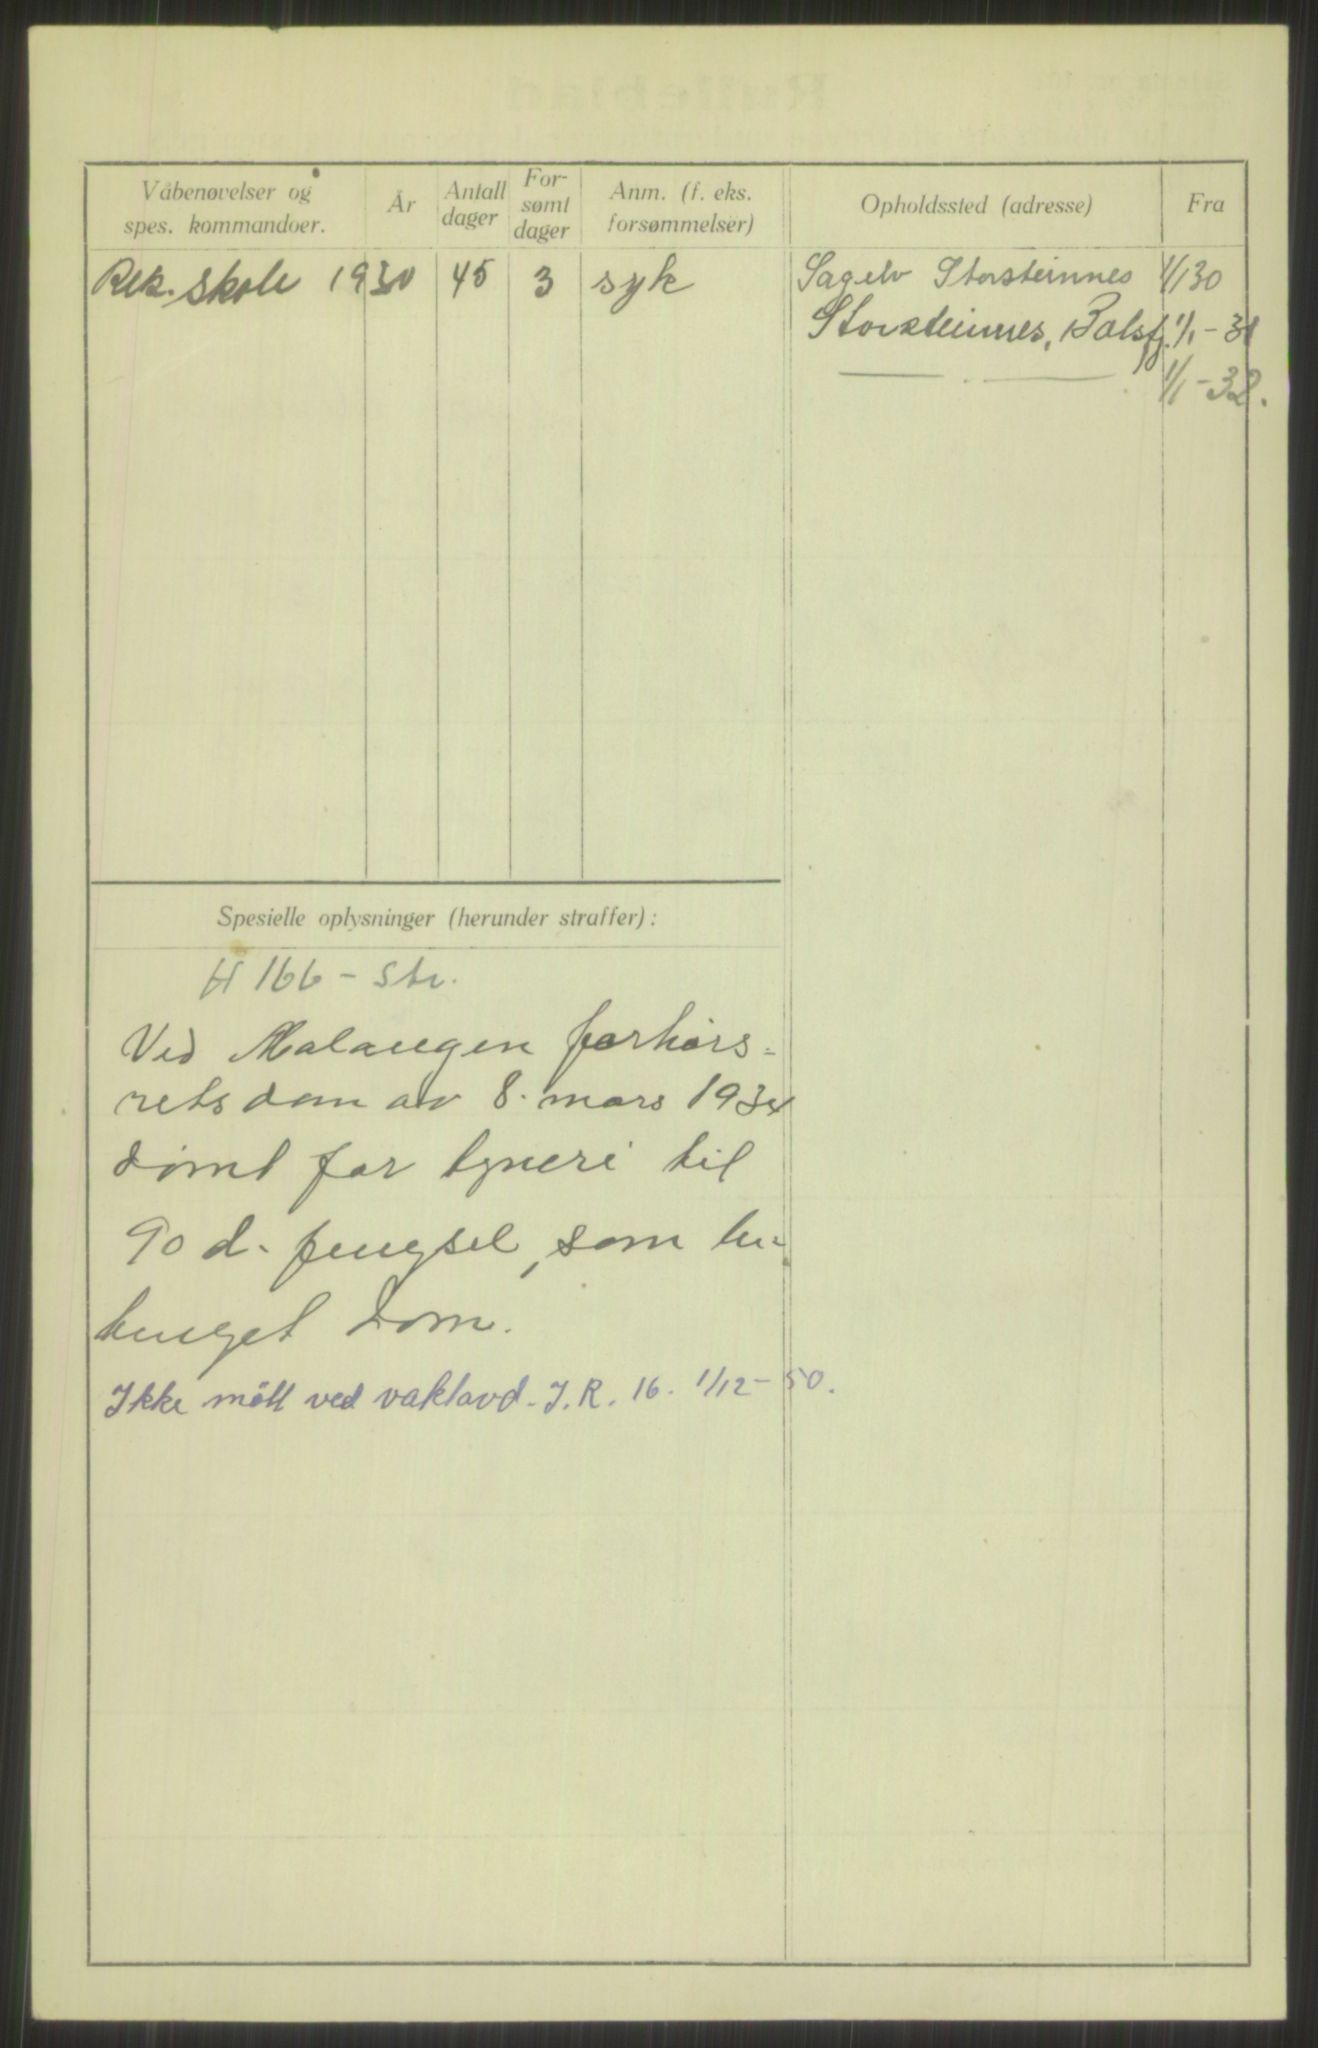 Våbenøvelser og
spes. kommandoer.
År
Antall
dager
For-
sømt
dager
Anm. (f. eks.
forsømmelser)
Opholdssted (adresse)
Fra
Rek. skole 1930 45 3 syk
Sagelv Storsteinnes 1/1 30
Storsteinnes, Balsfj. 1/1 - 31
— . — 1/1 - 32.
Spesielle oplysninger (herunder straffer):
H 166 - Str.
Ved Malangen forhørs-
retsdom av 8. mars 1934
dømt for tyveri til
90 d. fengsel, som be-
tinget dom.
Ikke møtt ved vaktavd. I.R. 16. 1/12 - 50.